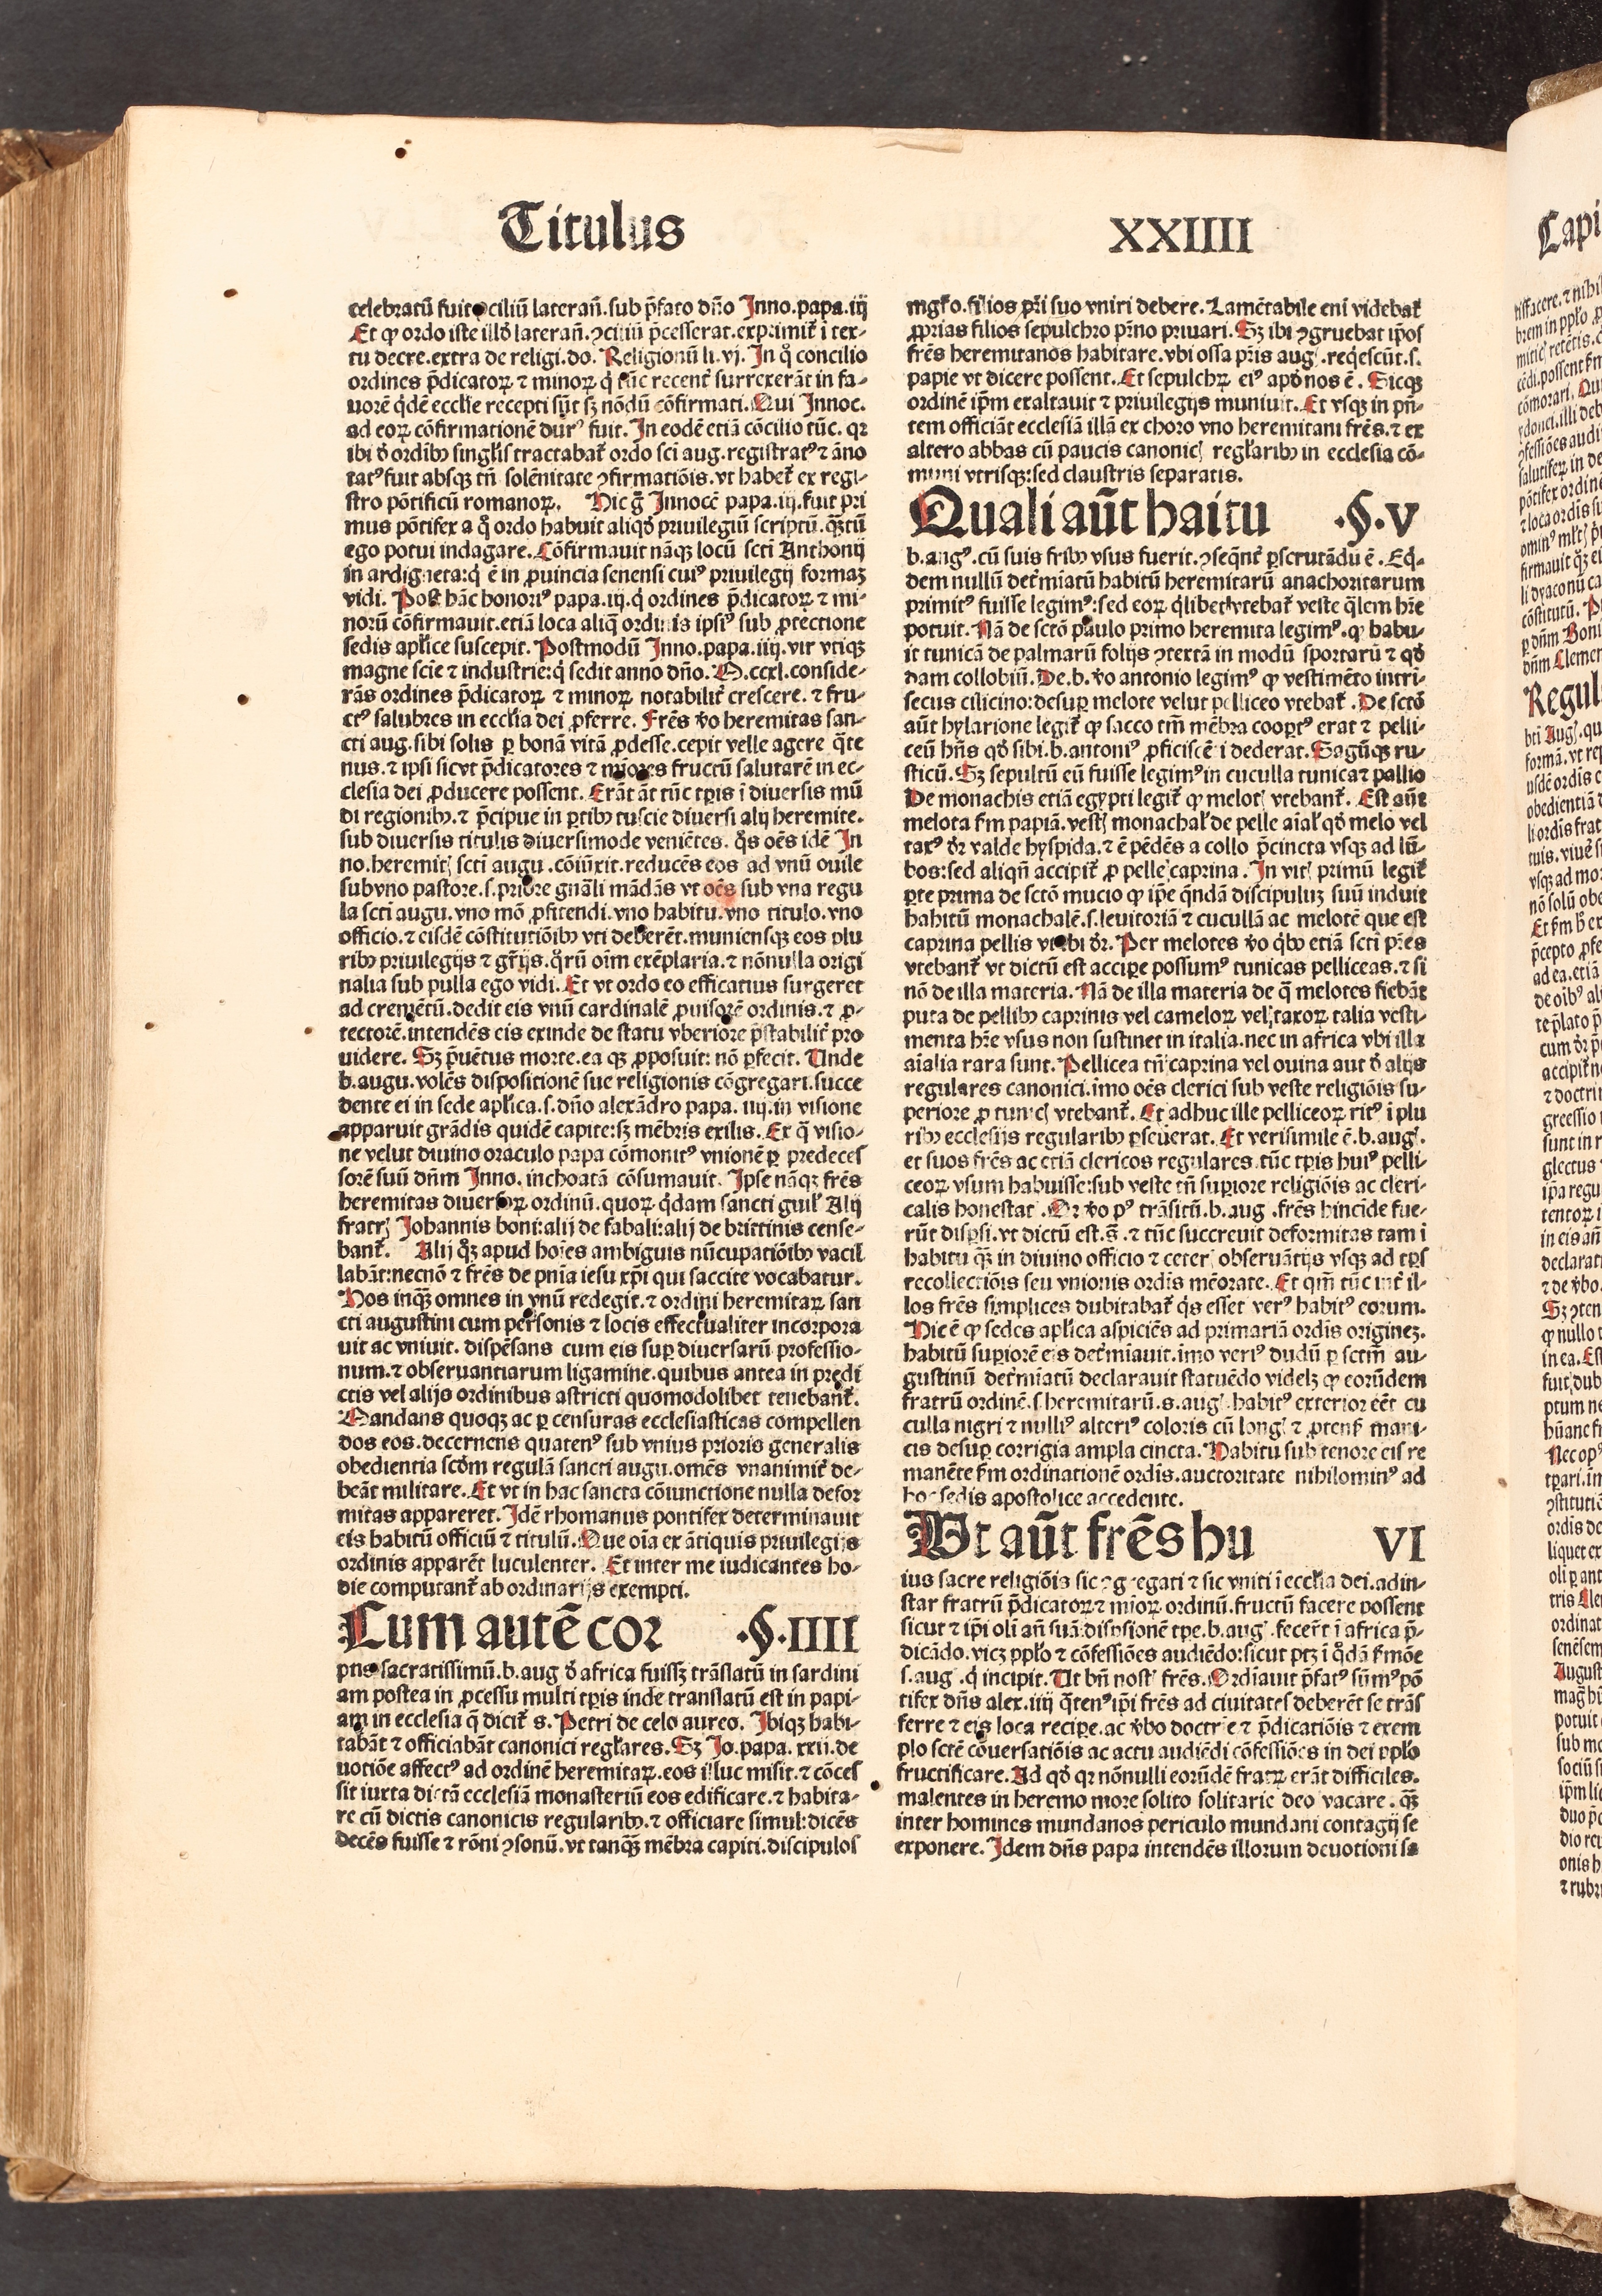 Titulus
XXIIII
celebratū fuit ciliū laterañ.sub p̄fato dño Inno.papa.iij
Et ꝙ ordo iste illđ laterañ.ꝯciliū p̄cesserat.exprimit̃ ī tex-
tu decre.extra de religi.do. Religionū li.vj. In q̊ concilio
ordines p̄dicatoꝝ ⁊ minoꝝ q̇ tūc recent̃ surrexerāt in fa-
uorē q̇dē eccl̃ie recepti sūt sꝫ nōdū cōfirmati. Qui Innoc.
ad eoꝝ cōfirmationē durꝰ fuit. In eodē etiā cōcilio tūc. qꝛ
ibi đ ordībꝰ singl̃is tractabat̃ ordo sci aug.registratꝰ ⁊ āno
tatꝰ fuit absqꝫ tñ solēnitate ꝯfirmatiōis.vt habet̃ ex regi-
stro pōtificū romanoꝝ. Hic g̃ Innocē papa.iij.fuit pri
mus pōtifex a q̊ ordo habuit aliqđ priuilegiū scriptū.q̄tū
ego potui indagare. Cōfirmauit nāqꝫ locū scti Anthonij
in ardigneta:q̇ ē in ꝓuincia senensi cuiꝰ priuilegij formaꝫ
vidi. Post hāc honoriꝰ papa.iij.q̇ ordines p̄dicatoꝝ ⁊ mi-
norū cōfirmauit.etiā loca aliq̄ ordinis ipsiꝰ sub ꝓtectione
sedis apl̃ice suscepit. Postmodū Inno.papa.iiij.vir vtiqꝫ
magne scīe ⁊ industrie:q̇ sedit anno dño. M.ccxl.conside-
rās ordines p̄dicatoꝝ ⁊ minoꝝ notabilit̃ crescere.⁊ fru-
ctꝰ salubres in eccl̃ia dei ꝓferre. Frēs v̊o heremitas san-
cti aug.sibi solis ꝑ bonā vitā ꝓdesse.cepit velle agere q̄te
nus.⁊ ipsi sicut p̄dicatores ⁊ miores fructū salutarē in ec-
clesia dei ꝓducere possent. Erāt āt tūc tꝑis ī diuersis mū
di regionibꝰ.⁊ p̄cipue in ꝑtibꝰ tuscie diuersi alij heremite.
sub diuersis titulis diuersimode veniētes. q̊s oēs idē In
no.heremit̃ scti augu.cōiūxit.reducēs eos ad vnū ouile
sub vno pastore.s.priore gn̄ali mādās vt oēs sub vna regu
la scti augu.vno mō ꝓfitendi.vno habitu.vno titulo.vno
officio.⁊ eisdē cōstitutiōibꝰ vti deberēt.muniensqꝫ eos plu
ribꝰ priuilegijs ⁊ gr̄ijs.q̊rū oīm exēplaria.⁊ nōnulla origi
nalia sub pulla ego vidi. Et vt ordo eo efficatius surgeret
ad cremētū.dedit eis vnū cardinalē ꝓuisorē ordinis.⁊ ꝓ-
tectorē.intendēs eis exinde de statu vberiore p̄stabilit̃ pro
uidere. Sꝫ p̄uētus morte.ea qꝫ ꝓposuit: nō ꝑfecit. Unde
b.augu.volēs dispositionē sue religionis cōgregari.succe
dente ei in sede apl̃ica.s.dño alexādro papa. iiij.in visione
apparuit grādis quidē capite:sꝫ mēbris exilis. Ex q̄ visio-
ne velut diuino oraculo papa cōmonitꝰ vnionē ꝑ predeces
sorē suū dñm Inno. inchoatā cōsumauit. Ipse nāqꝫ frēs
heremitas diuersoꝝ ordinū.quoꝝ q̇dam sancti guil̃ Alij
fratrꝭ Johannis boni:alij de fabali:alij de brittinis cense-
bant̃. Alij q̊ꝫ apud hoīes ambiguis nūcupatiōibꝰ vacil
labāt:necnō ⁊ frēs de pnīa iesu xp̄i qui saccite vocabatur.
Hos inqꝫ omnes in vnū redegit.⁊ ordini heremitaꝝ san
cti augustini cum personis ⁊ locis effectualiter incorpora
uit ac vniuit. dispēsans cum eis suꝑ diuersarū professio-
num.⁊ obseruantiarum ligamine.quibus antea in predi
ctis vel alijs ordinibus astricti quomodolibet tenebant̃.
Mandans quoqꝫ ac ꝑ censuras ecclesiasticas compellen
dos eos.decernens quatenꝰ sub vnius prioris generalis
obedientia scđm regulā sancti augu.omēs vnanimit̃ de-
beāt militare. Et vt in hac sancta cōiunctione nulla defor
mitas appareret. Idē rhomanus pontifex determinauit
eis habitū officiū ⁊ titulū. Que oīa ex ātiquis priuilegijs
ordinis apparēt luculenter. Et inter me iudicantes ho-
die computant̃ ab ordinarijs exempti.
Cum autē cor ·§·IIII
pus sacratissimū.b.aug đ africa fuissꝫ trāslatū in sardini
am postea in ꝓcessu multi tꝑis inde translatū est in papi-
am in ecclesia q̄ dicit̃ s. Petri de celo aureo. Ibiqꝫ habi-
tabāt ⁊ officiabāt canonici regl̃ares. Sꝫ Jo.papa. xxij.de
uotiōe affectꝰ ad ordinē heremitaꝝ.eos illuc misit.⁊ cōces
sit iuxta dictā ecclesiā monasteriū eos edificare.⁊ habita-
re cū dictis canonicis regularibꝰ.⁊ officiare simul:dicēs
decēs fuisse ⁊ rōni ꝯsonū.vt tanqꝫ mēbra capiti.discipulos
mg̃ro.filios pr̄i suo vniri debere. Lamētabile eni videbat̃
ꝓprias filios sepulchro pr̄no priuari. Sꝫ ibi ꝯgruebat ip̄os
frēs heremitanos habitare.vbi ossa pr̄is aug .req̇escūt.s.
papie vt dicere possent. Et sepulchꝝ eiꝰ apđ nos ē. Sicqꝫ
ordinē ip̄m exaltauit ⁊ priuilegijs muniuit. Et vsqꝫ in pñ-
tem officiāt ecclesiā illā ex choro vno heremitani frēs.⁊ ex
altero abbas cū paucis canonicꝭ regl̃aribꝰ in ecclesia cō-
muni vtrisqꝫ:sed claustris separatis.
Quali aūt haitu ·§·V
b.augꝰ.cū suis fribꝰ vsus fuerit.ꝯseq̄nt̃ ꝑscrutādū ē. Eq̇-
dem nullū det̃miatū habitū heremitarū anachoritarum
primitꝰ fuisse legimꝰ:sed eoꝝ q̇libet vtebat̃ veste q̄lem hr̄e
potuit. Nā de sctō paulo primo heremita legimꝰ. ꝙ habu-
it tunicā de palmarū folijs ꝯtextā in modū sportarū ⁊ qđ
dam collobiū. De.b. v̊o antonio legimꝰ ꝙ vestimēto intri-
secus cilicino:desuꝑ melote velut pelliceo vtebat̃. De sctō
aūt hylarione legit̃ ꝙ sacco tm̄ mēbra cooptꝰ erat ⁊ pelli-
ceū hñs qđ sibi.b.antoniꝰ ꝓficiscēti dederat. Sagūqꝫ ru-
sticū. Sꝫ sepultū eū fuisse legimꝰ in cuculla tunica ⁊ pallio
De monachis etiā egypti legit̃ ꝙ melotꝭ vtebant̃. Est aūt
melota ẜm papiā.vestꝭ monachal̃ de pelle aīal̃ qđ melo vel
taxꝰ dr̄ valde hyspida.⁊ ē pēdēs a collo p̄cincta vsqꝫ ad lū-
bos:sed aliqñ accipit̃ ꝓ pelle caprina. In vitꝭ primū legit̃
ꝑte prima de sctō mucio ꝙ ip̄e q̄ndā discipuluꝫ suū induit
habitū monachalē.s.leuitoriā ⁊ cucullā ac melotē que est
caprina pellis vt ibi dr̄. Per melotes v̊o q̇bꝰ etiā scti pr̄es
vtebant̃ vt dictū est accipe possumꝰ tunicas pelliceas.⁊ si
nō de illa materia. Nā de illa materia de q̄ melotes fiebāt
puta de pellibꝰ caprinis vel cameloꝝ vel taxoꝝ talia vesti-
menta hr̄e vsus non sustinet in italia.nec in africa vbi illa
aīalia rara sunt. Pellicea tñ caprina vel ouina aut đ alijs
regulares canonici.imo oēs clerici sub veste religiōis su-
periore ꝓ tunicꝭ vtebant̃. Et adhuc ille pelliceoꝝ ritꝰ ī plu
ribꝰ ecclesijs regularibꝰ ꝑseuerat. Et verisimile ē.b.aug.
et suos frēs ac etiā clericos regulares tūc tꝑis huiꝰ pelli-
ceoꝝ vsum habuisse:sub veste tñ suꝑiore religiōis ac cleri-
calis honestat . Qꝛ v̊o pꝰ trāsitū.b.aug .frēs hincīde fue-
rūt disꝑsi.vt dictū est.s̄.⁊ tūc succreuit deformitas tam ī
habitu qꝫ in diuino officio ⁊ ceterꝭ obseruātijs vsqꝫ ad tꝑs
recollectiōis seu vnionis ordīs mēorate. Et qm̄ tūc int̃ il-
los frēs simplices dubitabat̃ q̇s esset verꝰ habitꝰ eorum.
Hic ē ꝙ sedes apl̃ica aspiciēs ad primariā ordīs origineꝫ.
habitū suꝑiorē eis det̃miauit.imo veriꝰ dudū ꝑ sctm̄ au-
gustinū det̃miatū declarauit statuēdo videlꝫ ꝙ eorūdem
fratrū ordinē.s heremitarū.s.aug .habitꝰ exterior eēt cu
culla nigri ⁊ nulliꝰ alteriꝰ coloris cū longꝭ ⁊ ꝓtensꝭ mani-
cis desuꝑ corrigia ampla cincta. Habitu sub tenore eis re
manēte ẜm ordinationē ordīs.auctoritate nihilominꝰ ad
hoc sedis apostolice accedente.
Ut aūt frēs hu VI
ius sacre religiōis sic ꝯgregati ⁊ sic vniti ī eccl̃ia dei.ad in-
star fratrū p̄dicatoꝝ ⁊ mioꝝ ordinū.fructū facere possent
sicut ⁊ ip̄i oli añ suā disꝑsionē tꝑe.b.aug .fecer̄t ī africa p̄-
dicādo.vicꝫ ppl̃o ⁊ cōfessiōes audiēdo:sicut ptꝫ ī q̊dā ẜmōe
s.aug .q̇ incipit. Ut bñ nostꝭ frēs. Ordīauit p̄fatꝰ sūmꝰ pō
tifex dñs alex.iiij q̄tenꝰ ip̄i frēs ad ciuitates deberēt se trās
ferre ⁊ eis loca recipe.ac v̊bo doctrie ⁊ p̄dicatiōis ⁊ exem
plo sctē cōuersatiōis ac actu audiēdi cōfessiōes in dei ppl̃o
fructificare. Ad qđ qꝛ nōnulli eorūdē fratꝝ erāt difficiles.
malentes in heremo more solito solitarie deo vacare .qꝫ
inter homines mundanos periculo mundani contagij se
exponere. Idem dñs papa intendēs illorum deuotioni sa